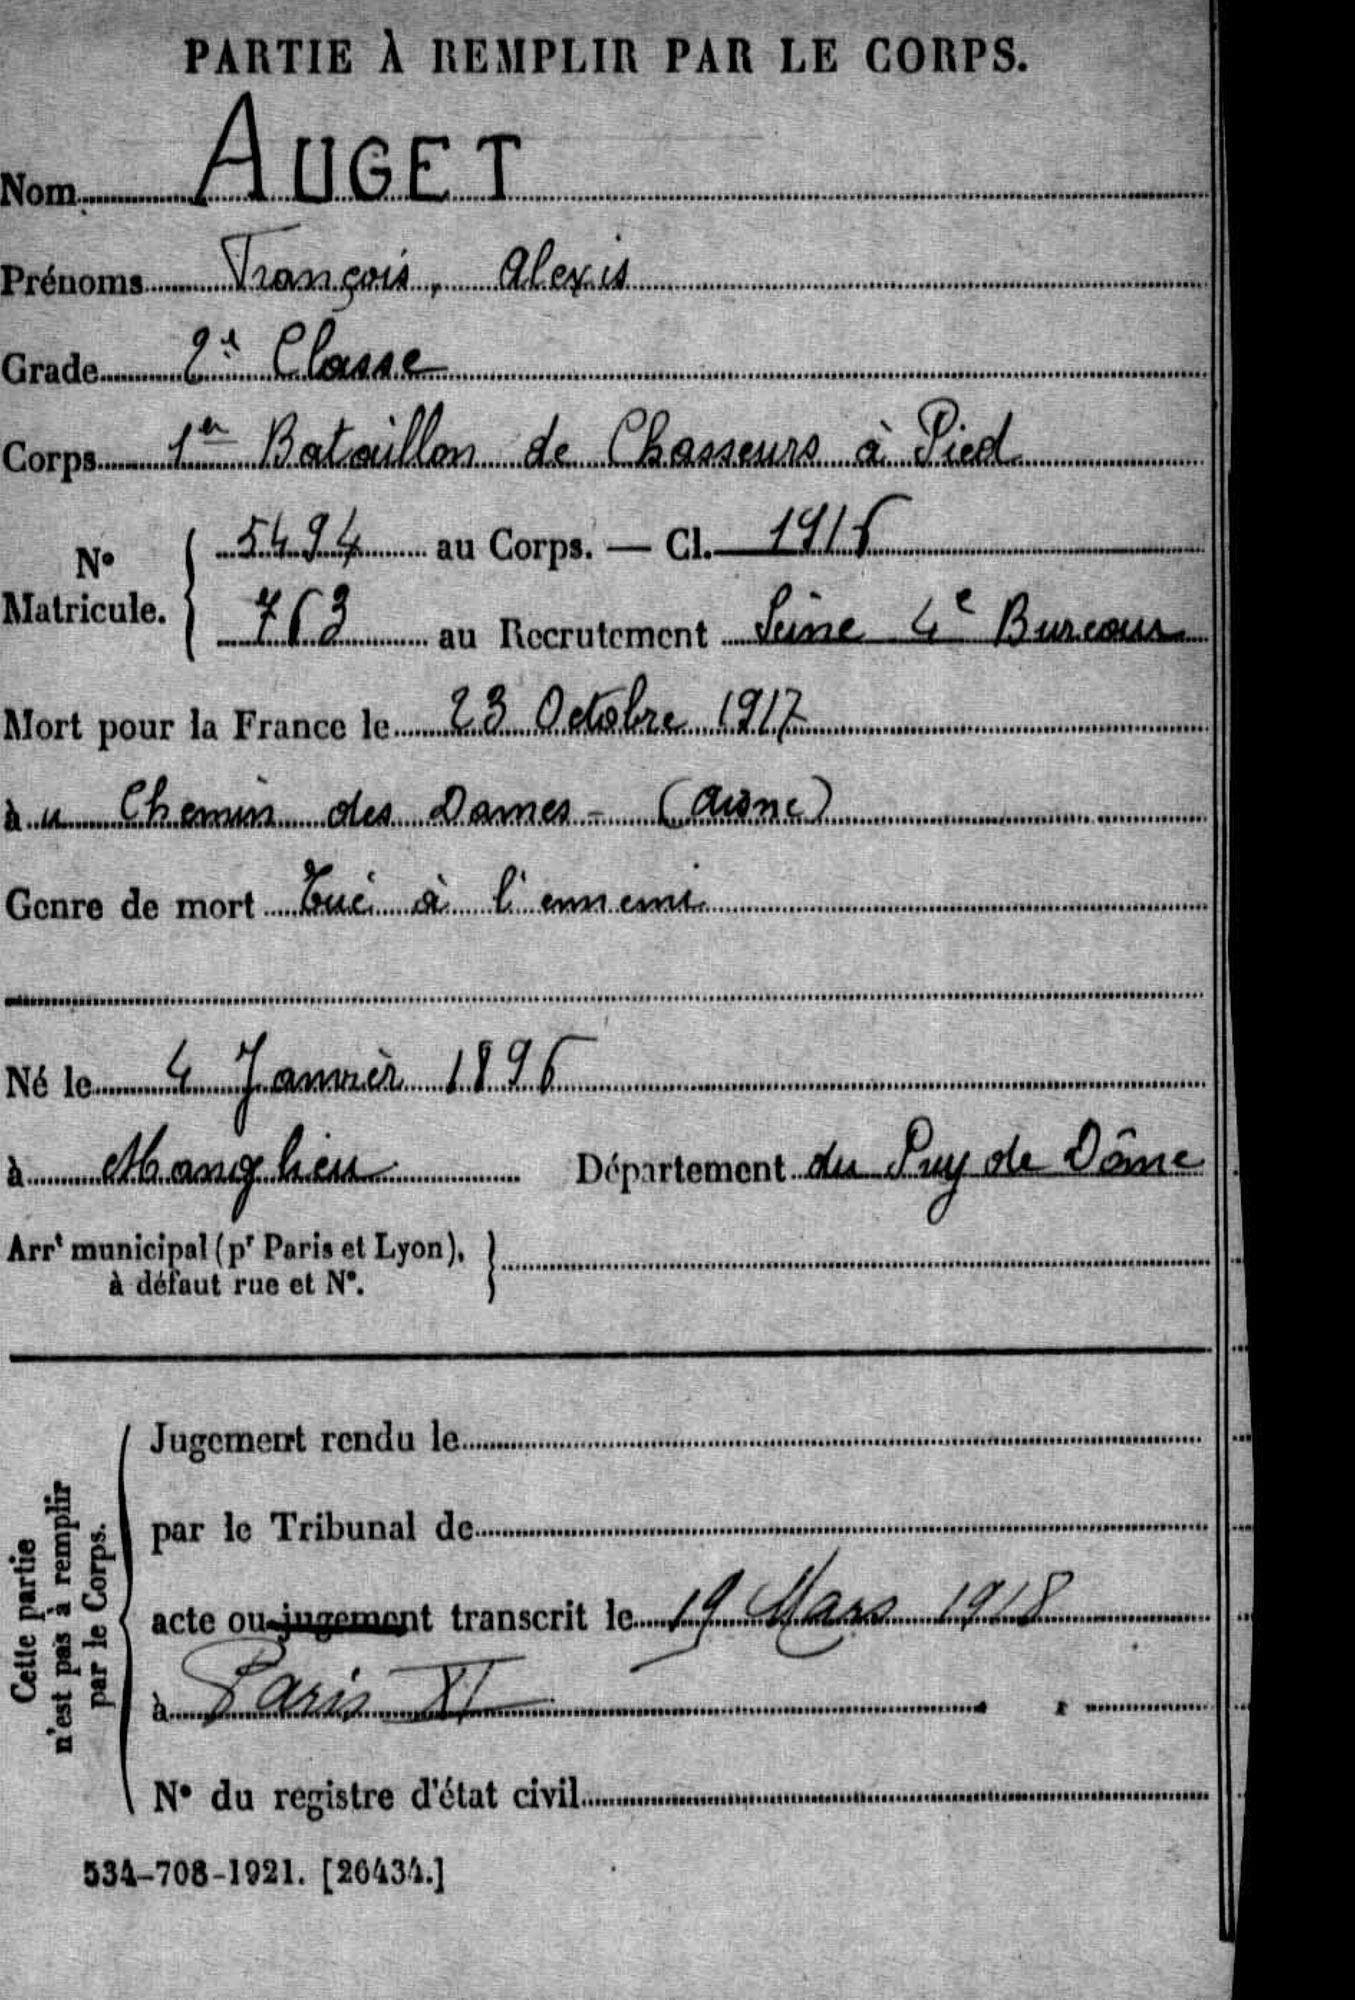 PARTIE À REMPLIR PAR LE CORPS.
Nom AUGET
Prénoms François, Alexis
Grade 2e Classe
Corps 1er Bataillon de Chasseurs à Pied
N° Matricule. { 5494 au Corps. — Cl. 1916
763 au Recrutement Seine 4e Bureau
Mort pour la France le 23 Octobre 1917
à u Chemin des Dames - (Aisne)
Genre de mort Tué à l'ennemi
Né le 4 Janvier 1896
à Manglieu Département du Puy de Dôme
Arrt municipal (pr Paris et Lyon), à défaut rue et N°. }
Cette partie n'est pas à remplir par le Corps.
Jugement rendu le
par le Tribunal de
acte ou jugement transcrit le 19 Mars 1918
à Paris XI
N° du registre d'état civil
534-708-1921. [26434.]